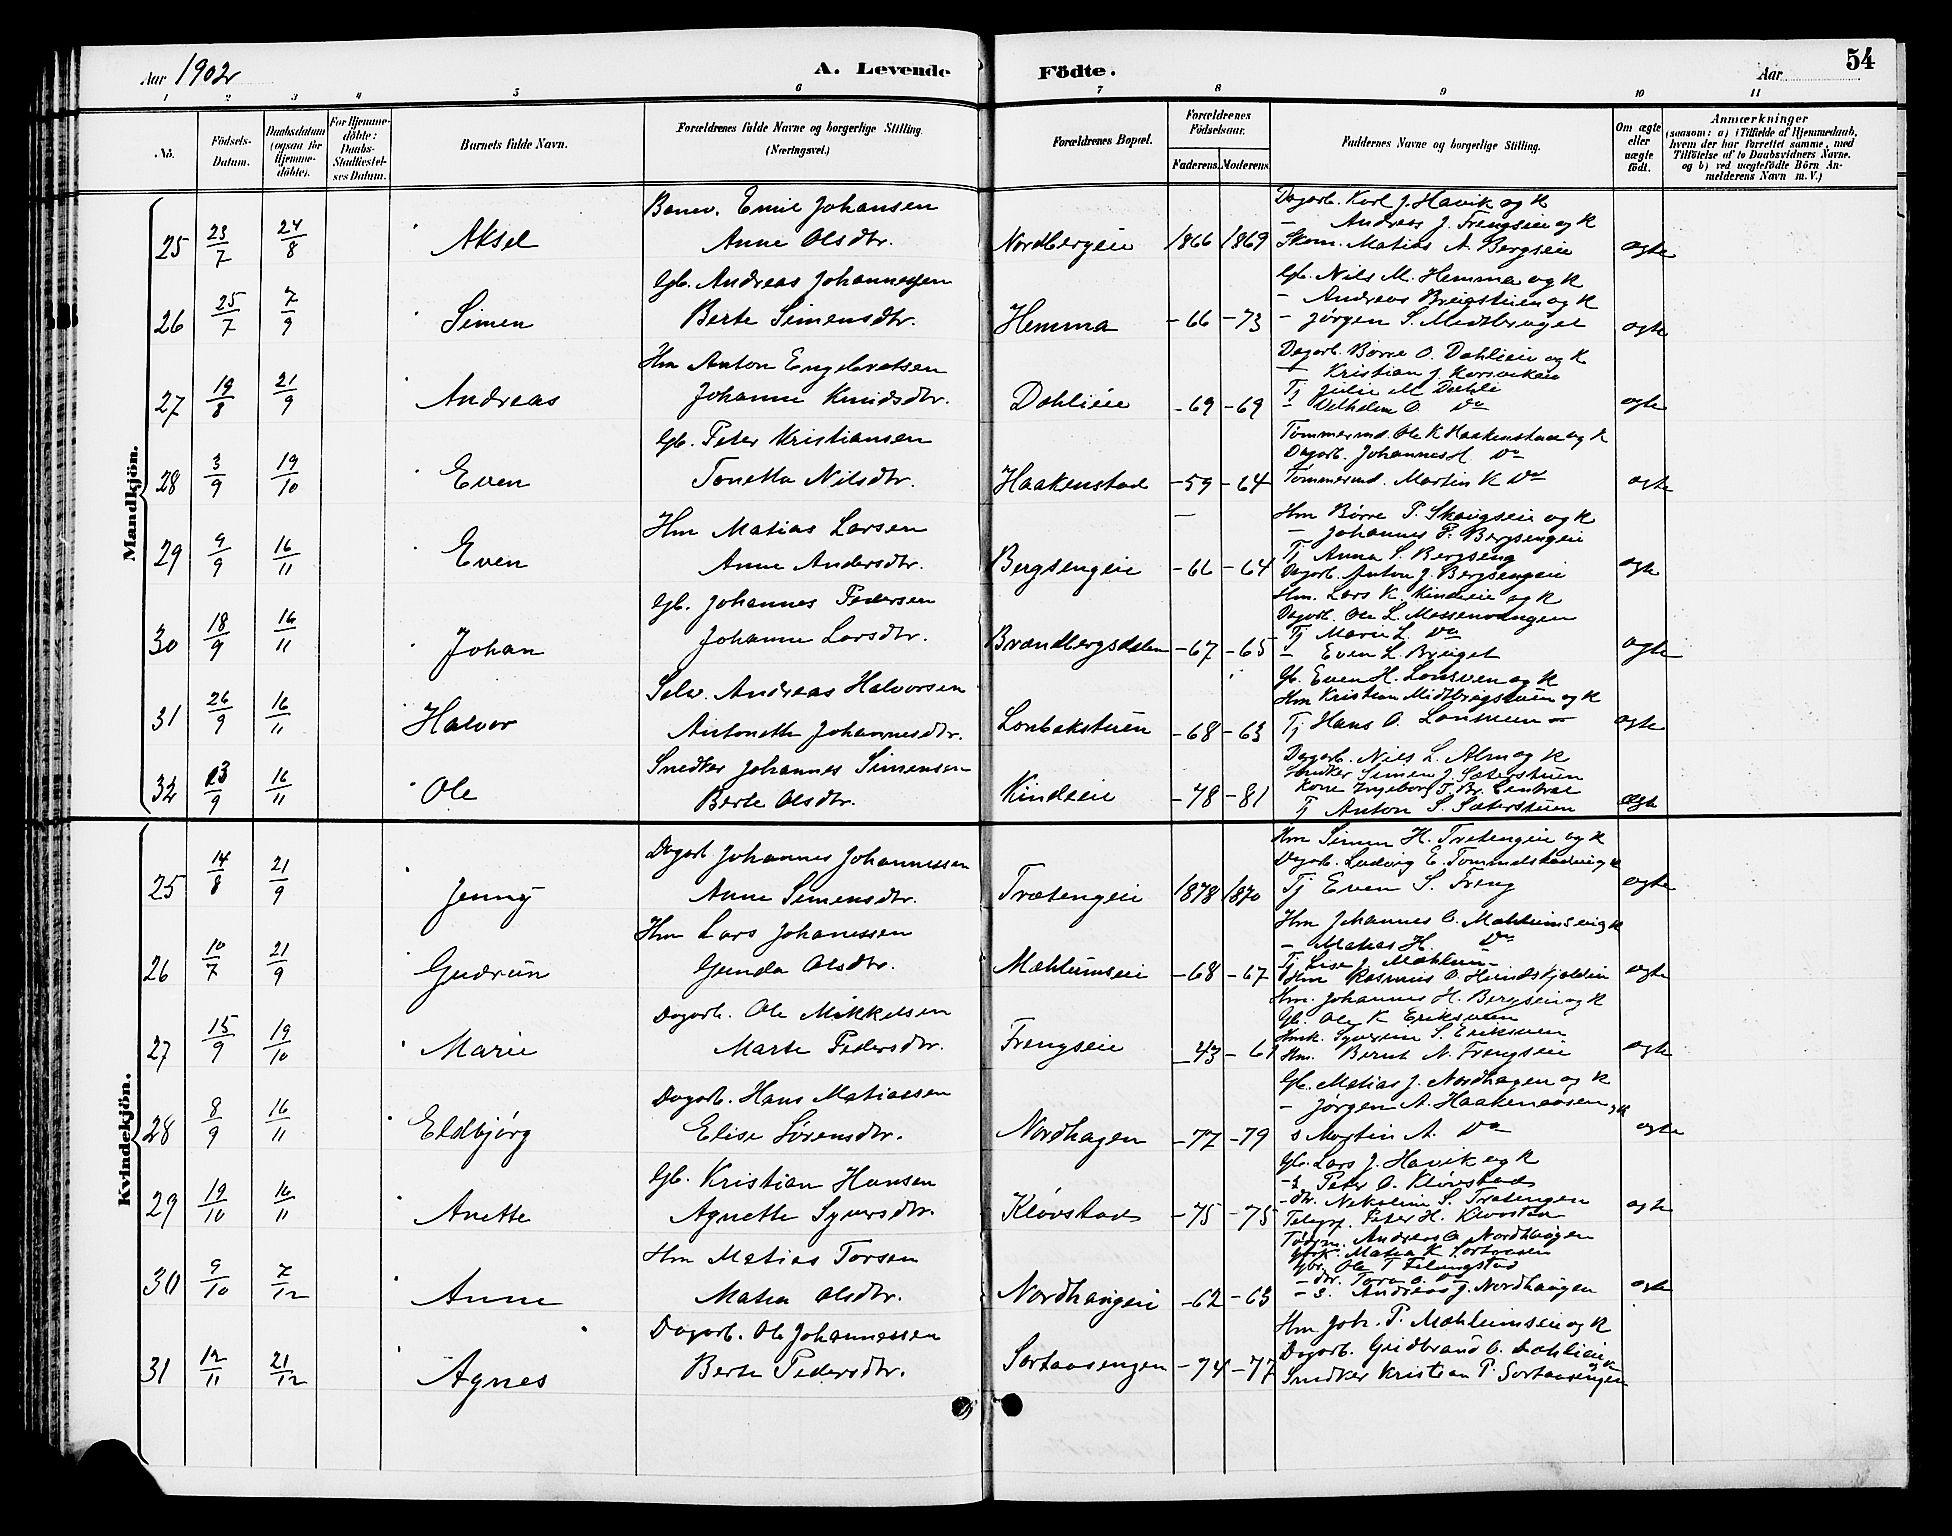 Aar 1902
A. Levende
Födte.
Aar
54
1 2 3 4 5 6 7 8 9 10 11
No.
Födsels-Datum.
Daabsdatum (ogsaa for Hjemmedöbte).
For Hjemmedöbte: Daabs-Stadfæstelses Datum.
Barnets fulde Navn.
Forældrenes fulde Navne og borgerlige Stilling. (Næringsvei.)
Forældrenes Bopæl.
Forældrenes Födselsaar.
Faderens. Moderens.
Faddernes Navne og borgerlige Stilling.
Om ægte eller uægte födt.
Anmærkninger
(saasom: a) i Tilfælde af Hjemmedaab, hvem der har forrettet samme, med Tilföielse af to Daabsvidners Navne, og b) ved uegtefödte Börn Anmelderens Navn m. V.)
Mandkjön.
25 23/7 24/8 Aksel
Banev. Emil Johansen
Anne Olsdtr.
Nordbergeie 1866 1869
Dagarb. Karl J. Havik og K
— Andreas J. Frengseie og K
Skom. Matias A. Bergseie
ægte
26 25/7 7/9 Simen
Gb. Andreas Johannesen
Berte Simensdtr.
Hemma -66 -73
Gb. Nils M. Hemma og K
— Andreas Breidstuen og K
— Jørgen S. Midtbruget
ægte
27 19/8 21/9 Andreas
Hm Anton Engebretsen
Johanne Knudsdtr.
Dahlieie -69 -69
Dagarb. Børre O. Dahlieie og K
— Kristian J. Korsviken
Tj Julie M Dahli
— Vilhelm O. Do
ægte
28 3/9 19/10 Even
Gb. Peter Kristiansen
Tonetta Nilsdtr.
Haakenstad -59 -64
Tømmermd. Ole K Haakenstad og K
Dagarb. Johannes H. Do
Tømmermd. Martin K Do
ægte
29 9/9 16/11 Even
Hm Matias Larsen
Anne Andersdtr.
Bergsengeie -66 -64
Hm Børre P. Skaugseie og K
— Johannes P. Bergsengeie
Tj Anna S. Bergseng
Dagarb. Anton J. Bergsengeie
ægte
30 18/9 16/11 Johan
Gb. Johannes Pedersen
Johanne Larsdtr.
Brændbergsdalen -67 -65
Hm. Lars K. Kindleie og K
Dagarb. Ole L. Messenvangen
Tj Marie L. Do
— Even L. Bruget
ægte
31 26/9 16/11 Halvor
Selv. Andreas Halvorsen
Antonette Johannesdtr.
Lonbakstuen -68 -63
Gb. Even H. Lonsveen og K
Hm Kristian Midtbrugstuen og K
Tj Hans O. Lonsveen
ægte
32 13/9 16/11 Ole
Snedker Johannes Simensen
Berte Olsdtr.
Kindleie -78 -81
Dagarb. Nils L. Alm og K
Snedker Simen J. Sæterstuen
Kone Ingeborg T. Br. Central
Tj Anton S. Sæterstuen
ægte
Kvindekjön.
25 14/8 21/9 Jenny
Dagarb Johannes Johannessen
Anne Simensdtr.
Trætengeie 1878 1870
Hm Simen H. Trætengeie og K
Dagarb. Ludvig E. Tommelstadeie og K
Tj Even S. Freng
ægte
26 10/7 21/9 Gudrun
Hm Lars Johanessen
Gunda Olsdtr.
Mæhlumseie -68 -67
Hm Johannes O. Mæhlumseie og K
— Matias H. Do
Tj Lise J. Mæhlum
Hm Rasmus O.
ægte
27 15/9 19/10 Marie
Dagarb. Ole Mikkelsen
Marte Pedersdtr.
Frengseie -43 -61
Hm. Johannes H. Bergseie og K
Gb. Ole K Eriksveen
Syverine S. Eriksveen
Hm. Bernt N. Frengseie
ægte
28 8/9 16/11 Eldbjørg
Dagarb. Hans Matiassen
Elise Sørensdtr.
Nordhagen -77 -79
Gb. Matias J. Nordhagen og K
— Jørgen A. Haakenaasen og K
s Martin A. Do
ægte
29 19/10 16/11 Anette
Gb. Kristian Hansen
Agnette Syversdtr.
Kløvstad -75 -75
Gb. Lars J. Havik og K
-s Peter O. Kløvstad
-dr. Nekoline S. Trætengen
Telegrf. Peter H. Kløvstad
ægte
30 9/10 7/12 Anne
Hm Matias Torsen
Matea Olsdtr.
Nordhaugeie -62 -63
Andreas O. Nordhaugen
Matea K Sortaasen
Gbr. Ole T
— dr. Tora O. Do
— s. Andreas J. Nordhaugen
ægte
31 12/11 21/12 Agnes
Dagarb. Ole Johannessen
Berte Pedersdtr.
Sortaasengen -74 -77
Hm Joh. P. Mæhlumseie og K
Dagarb. Gudbrand O. Dahlieie og K
Snedker Kristian P. Sortaasengen